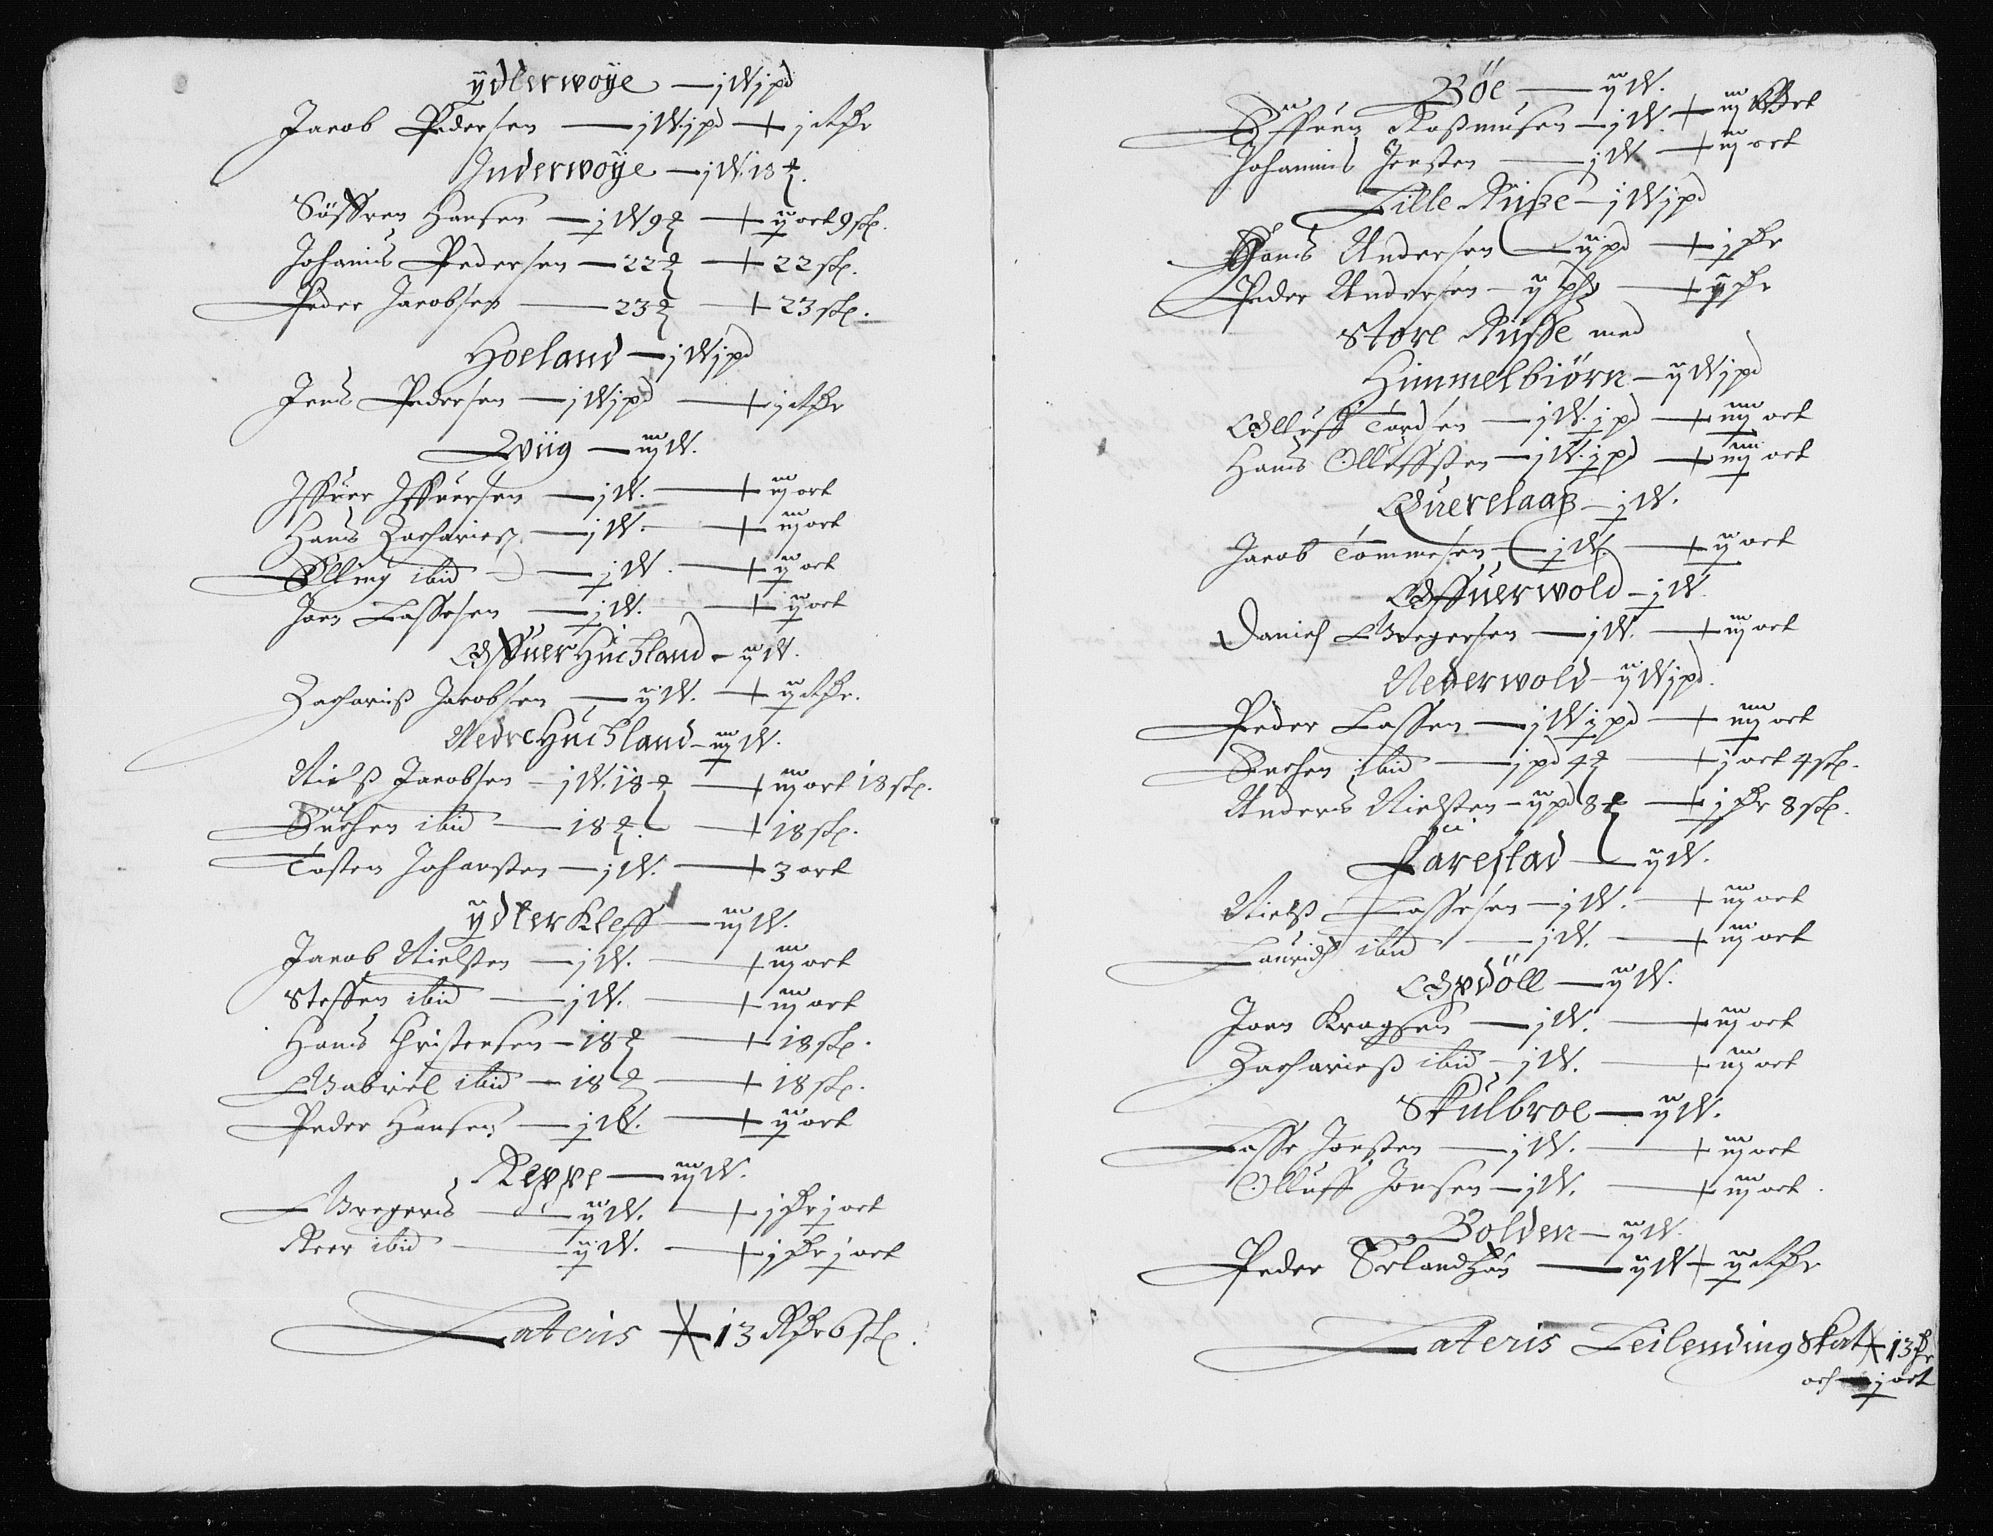 ÿdterwoÿe — j W j pd
Jacob Pedersen — j W j pd + j Rdr
Inderwoÿe — j W 18
Söffren Hansen — j W 9 + ij ort 9 sk.
Johanis Pedersen — 22 + 22 sk.
Peder Jacobsen — 23 + 23 sk.
Hoeland — j W j pd
Jens Pedersen — j W j pd + j Rdr
Wiig — iij W.
Iffuer Iffuersen — j W. + iij ort
Hans Zacharies — j W. + iij ort
Elling ibid — j W. + ij ort
Joen Lassesen — j W. + ij ort
Offuer Huichland — ij W.
Zacharias Jacobsen — ij W. + ij Rdr.
Nedre Huichland — iij W.
Nielß Jacobsen — j W. 18 + iij ort 18 sk.
Enchen ibid — 18 + 18 sk.
Tosten Johansten — j W. + 3 ort
ÿdter Kleff — iij W.
Jacob Nielsten — j W. + iij ort
Steffen ibid — j W. + iij ort
Hans Christensen — 18 + 18 sk.
Gabriel ibid — 18 + 18 sk.
Peder Hansen — j W. + ij ort
Reppe — iij W.
Gregers — ij W. + j dr j ort
Reer ibid — ij W. + j dr j ort
Lateris + 13 Rdr 6 sk.
Böe — ij W.
Söffren Rasmusen — j W. + iij ort
Johannis Jensten — j W. + iij ort
Lille Niiße — j W j pd
Hans Andersen — ij pd + j dr
Peder Andersen — ij pd + ij dr
Store Niisse med
Himmelbiörn — ij W j pd
Olluff Tordsen — j W. j pd + iiij ort
Hans Olluffsten — j W. j pd + iiij ort
Querelaaß — j W.
Jacob Tommesen — j W. + ij ort
Offuerwold — j W.
Daniel Gregersen — j W. + iij ort
Nederwold — ij W j pd.
Peder Lassen — j W j pd + iiij ort
Enchen ibid — j pd 4 + j ort 4 sk.
Anders Nielsten — ij pd 8 + j dr 8 sk.
Farestad — ij W.
Nielß Lassesen — j W. + iij ort
Lauridß ibid — j W. + iij ort
Opdöll — ij W.
Joen Kragsen — j W. + iij ort
Zacharieß ibid — j W. + iij ort
Skulbroe — ij W.
Lasse Jonsten — j W. + iij ort
Olluff Jonsen — j W. + iij ort.
Bolden — ij W.
Peder — ij W + ij Rdr
Lateris Leilending Skat + 13 dr
och j ort